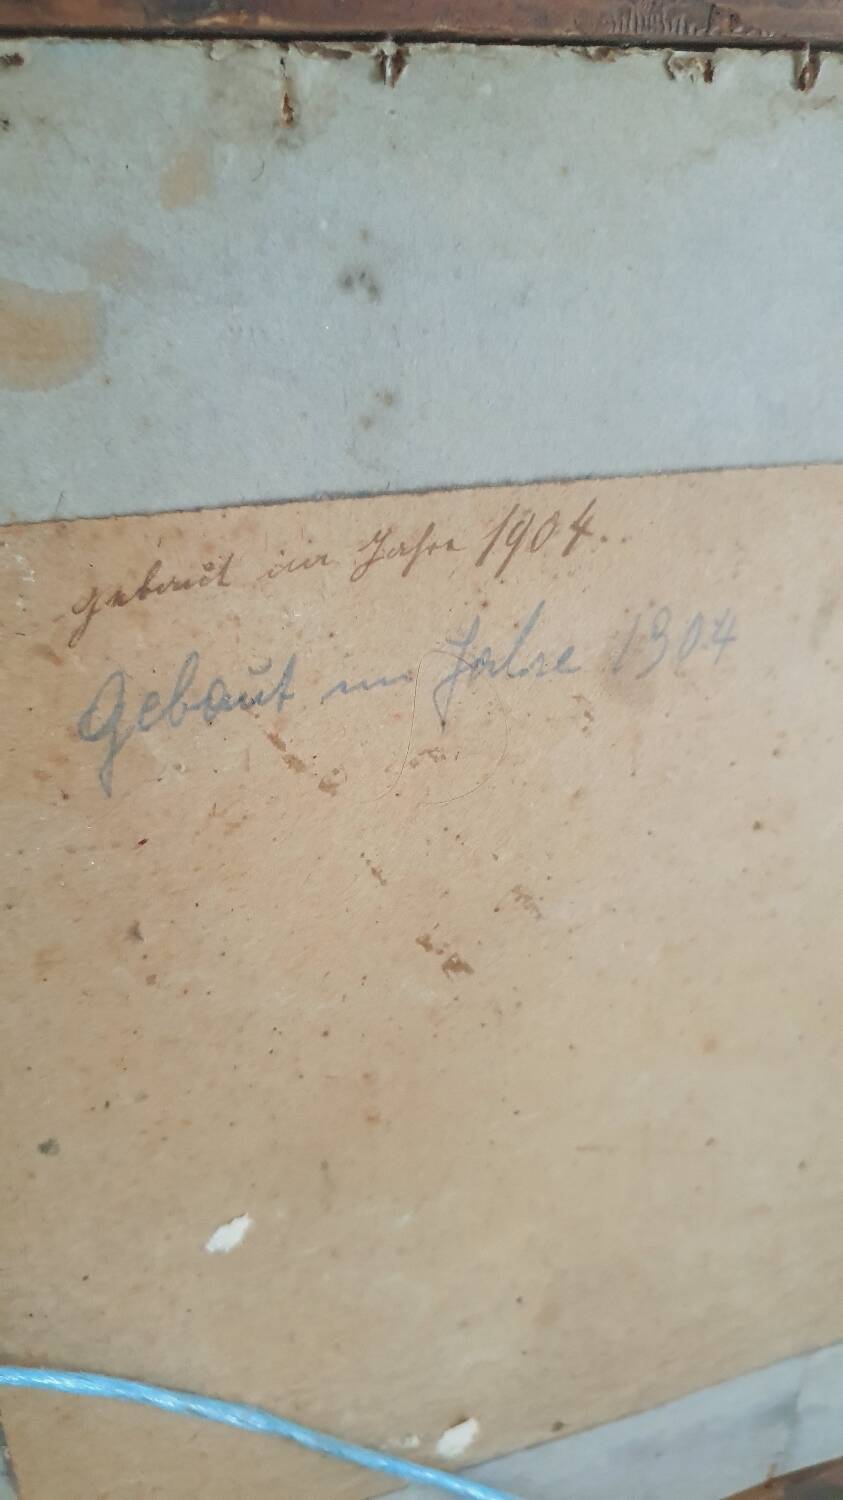 gebaut im Jahre 1904.
Gebaut im Jahre 1904